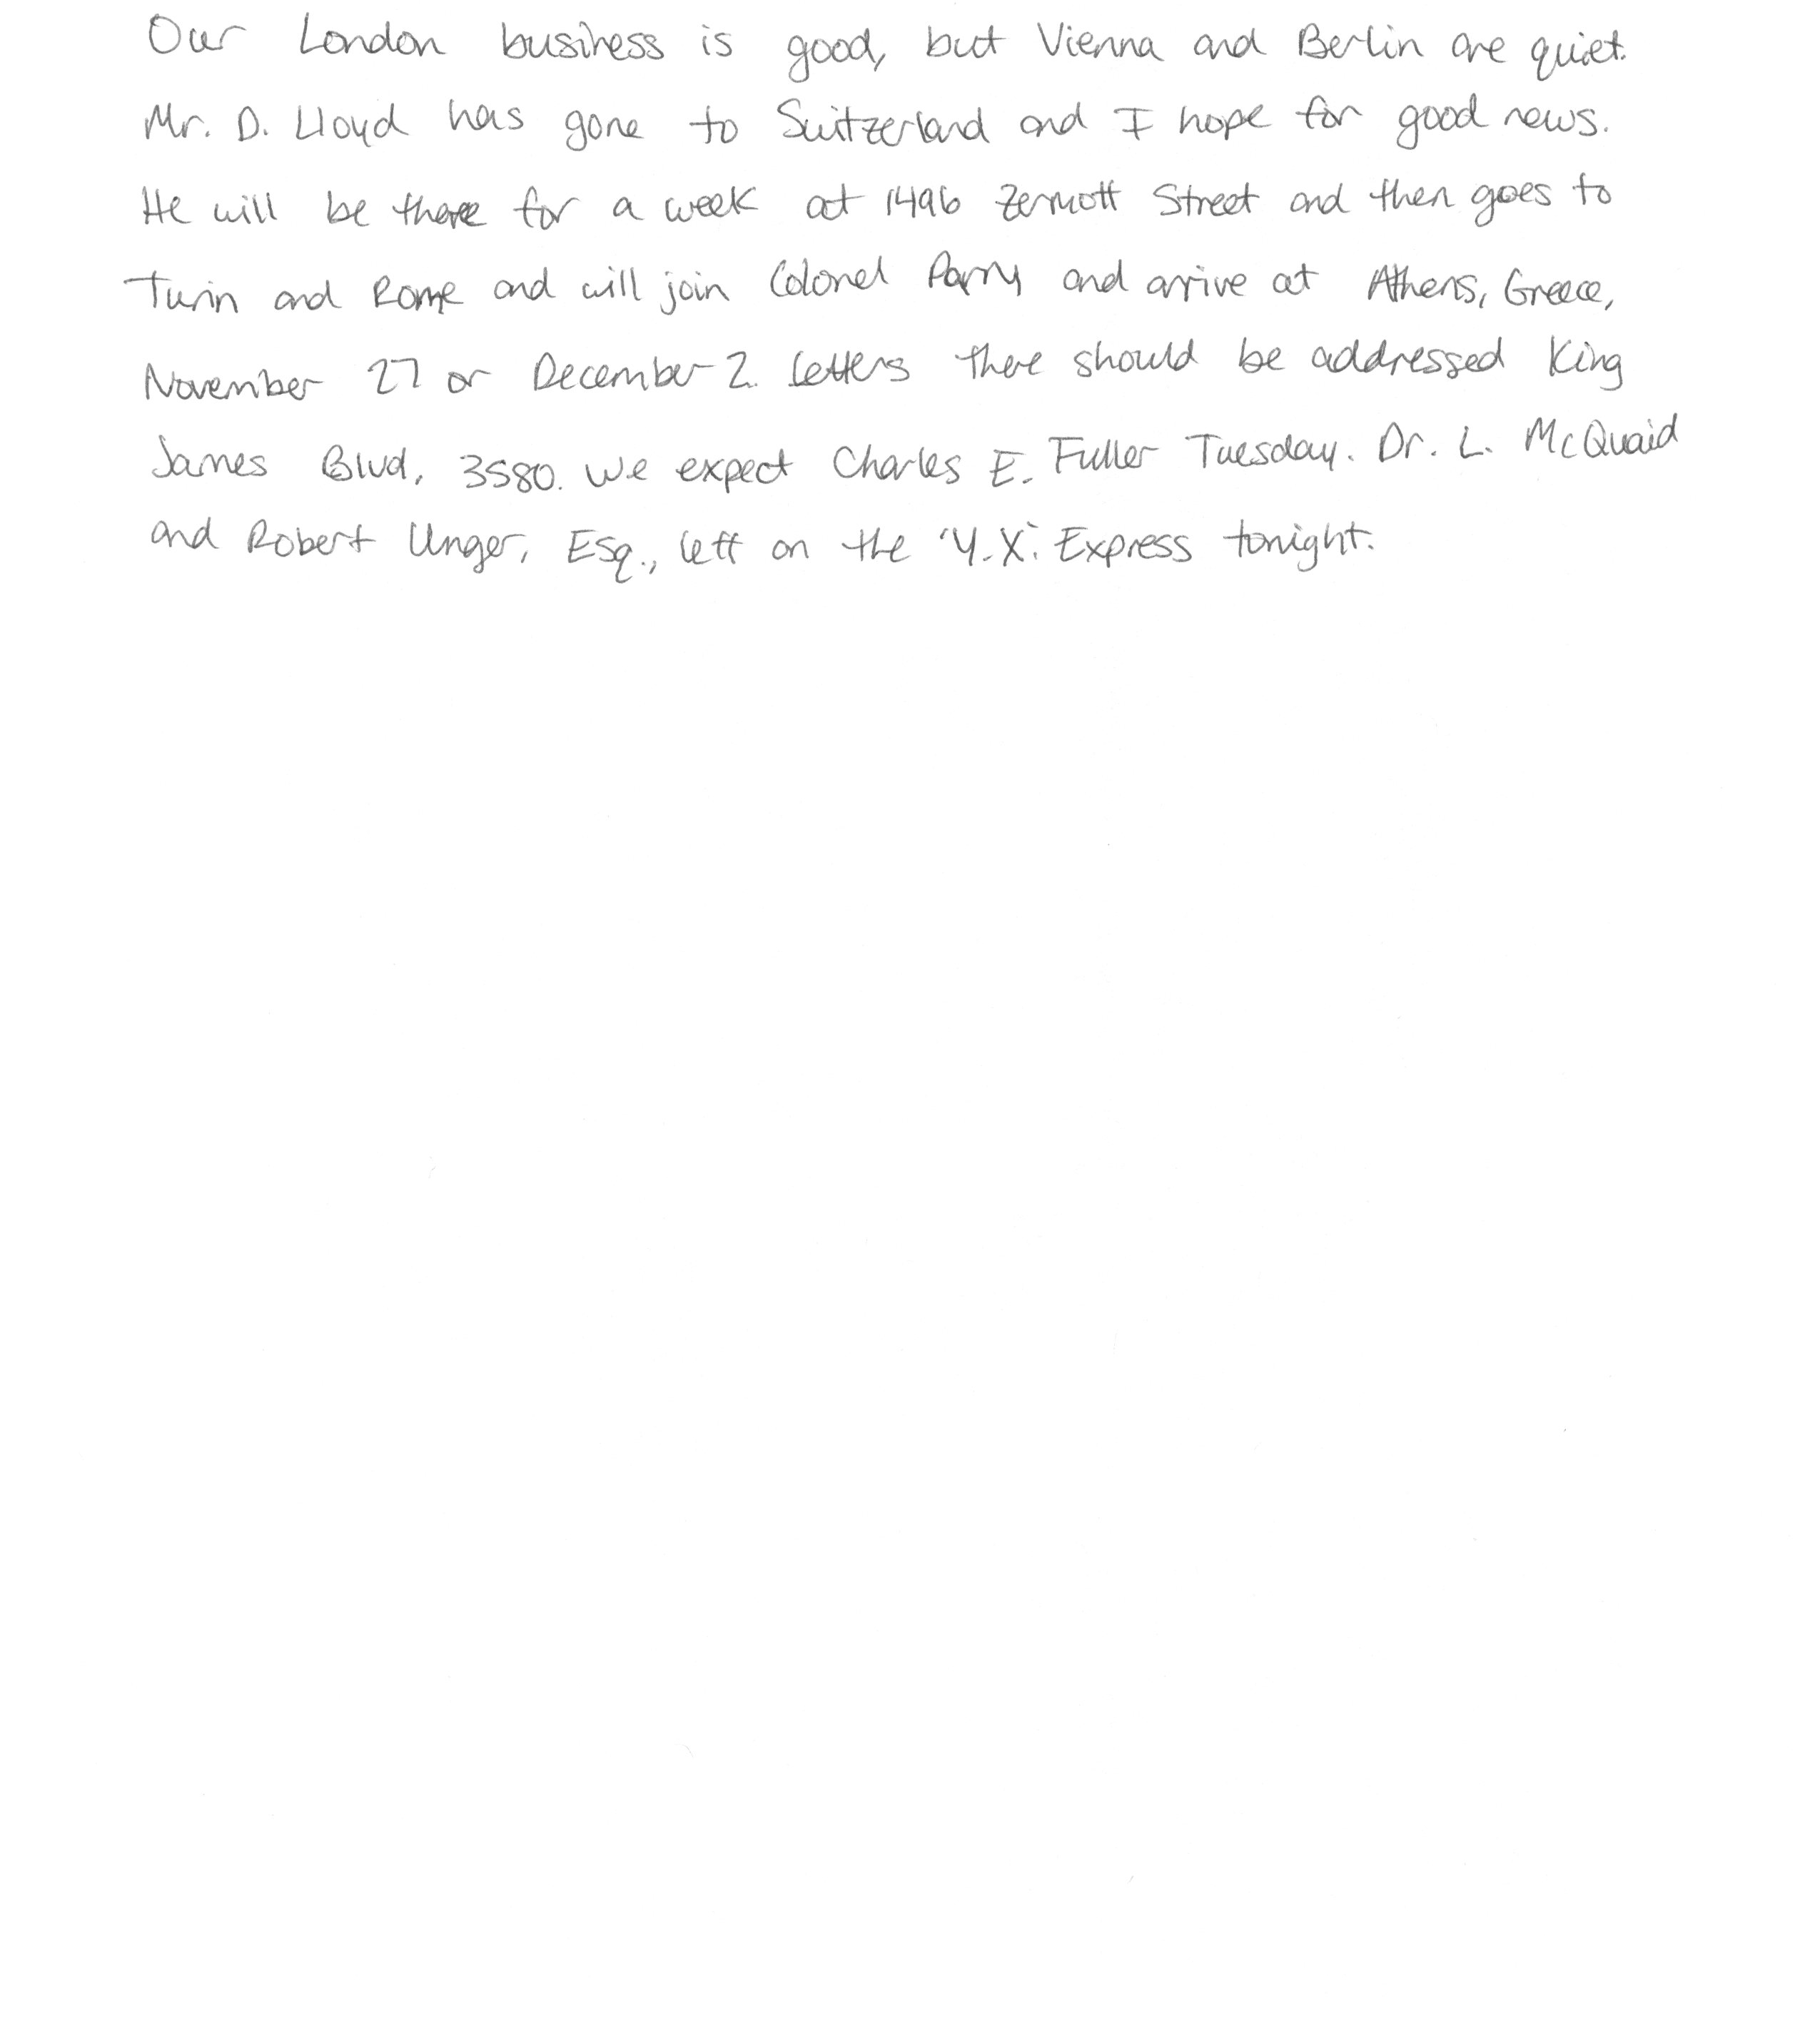 Our London business is good, but Vienna and Berlin are quiet.
Mr. D. Lloyd has gone to Switzerland and I hope for good news.
He will be there for a week at 1496 Zermott Street and then goes to
Turin and Rome and will join Colonel Parry and arrive at Athens, Greece,
November 27 or December 2. Letters there should be addressed King
James Blvd, 3580. We expect Charles E. Fuller Tuesday. Dr. L. McQuaid
and Robert Unger, Esq., left on the 'Y.X.' Express tonight.